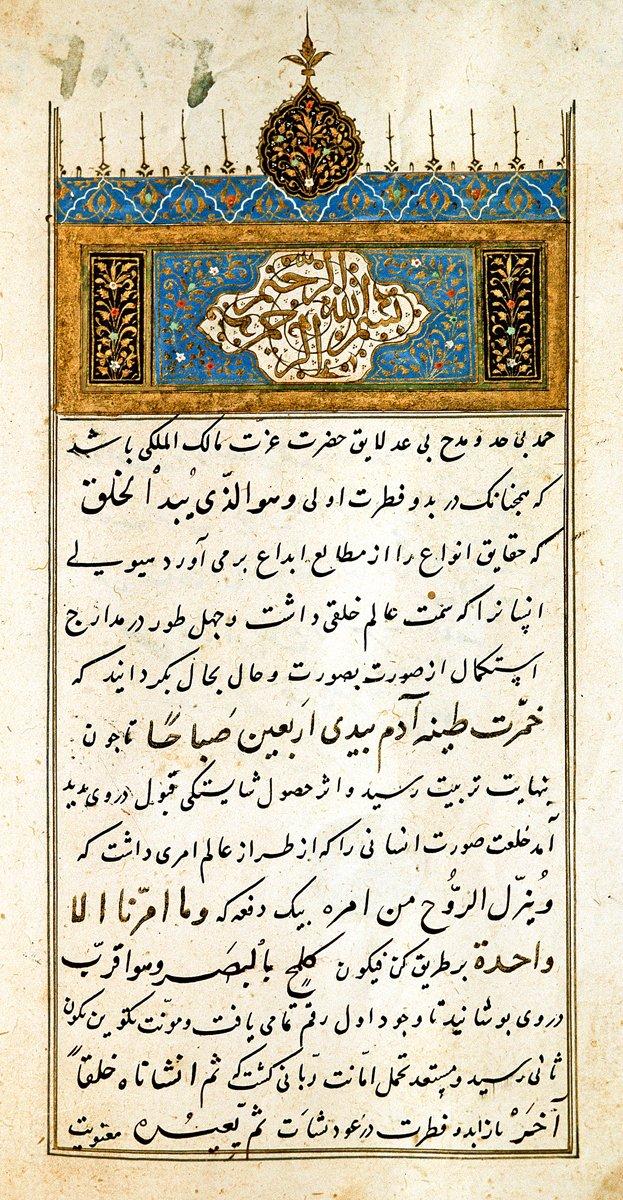 بسم الله الرحمن الرحیم
حمد بی حد و مدح بی عد لایق حضرت عزّت مالک الملکی باشد
که همجنانک در بدو فطرت اولی وهو الذّی یُبدأ الخلق
که حقایق انواع را از مطالع ابداع برمی آورد هیولے
انسانرا که سمت عالم خلقی داشت وجهل طور در مدارج
استکمال از صورت بصورت وحال بحال بکردانید که
خمّرت طینه آدم بیدی اَربعین صَباحًا تا جون
بنهایت تربیت رسید و اثر حصول شایستکی قبول در وی بدید
آمد خلعت صورت انسانی را که از طراز عالم امری داشت که
وُینزّل الروُّح من امره بیک دفعه که وما امرّنا الا
واحدة بر طریق کن فیکون کلمحٍ بالبصر وهو اقربّ
در وی بوشانید تا وجود اول رقم تمامی یافت ونوبّت بتکوین بکون
ثانی رسید و مستعد تحمل امانت ربّانی کشت که ثم انشاناه خلقاً
آخرَ باز ابد و فطرت در عود نشات ثم یّعیده معنویت